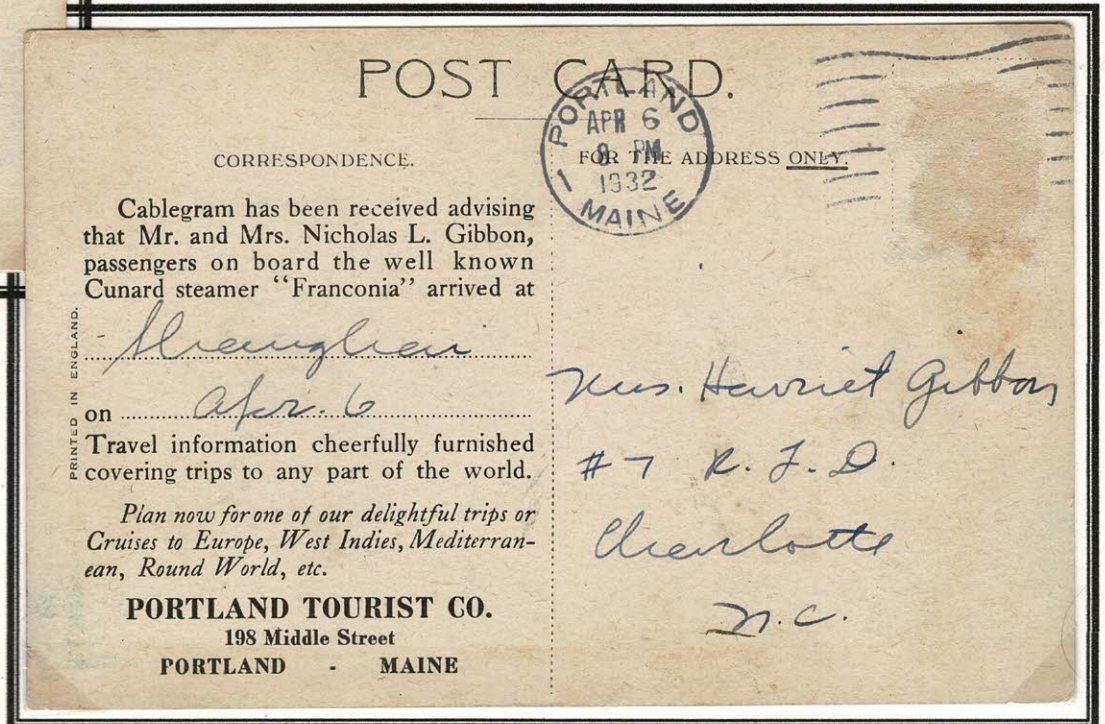 POST CARD.
PORTLAND
APR 6
8 PM
1932
MAINE
CORRESPONDENCE.
FOR THE ADDRESS ONLY.
Cablegram has been received advising
that Mr. and Mrs. Nicholas L. Gibbon,
passengers on board the well known
Cunard steamer "Franconia" arrived at
Shanghai
on Apr. 6
Travel information cheerfully furnished
covering trips to any part of the world.
Plan now for one of our delightful trips or
Cruises to Europe, West Indies, Mediterran-
ean, Round World, etc.
PORTLAND TOURIST CO.
198 Middle Street
PORTLAND - MAINE
PRINTED IN ENGLAND.
Mrs. Harriet Gibbon
#7 R. F. D.
Charlotte
N.C.